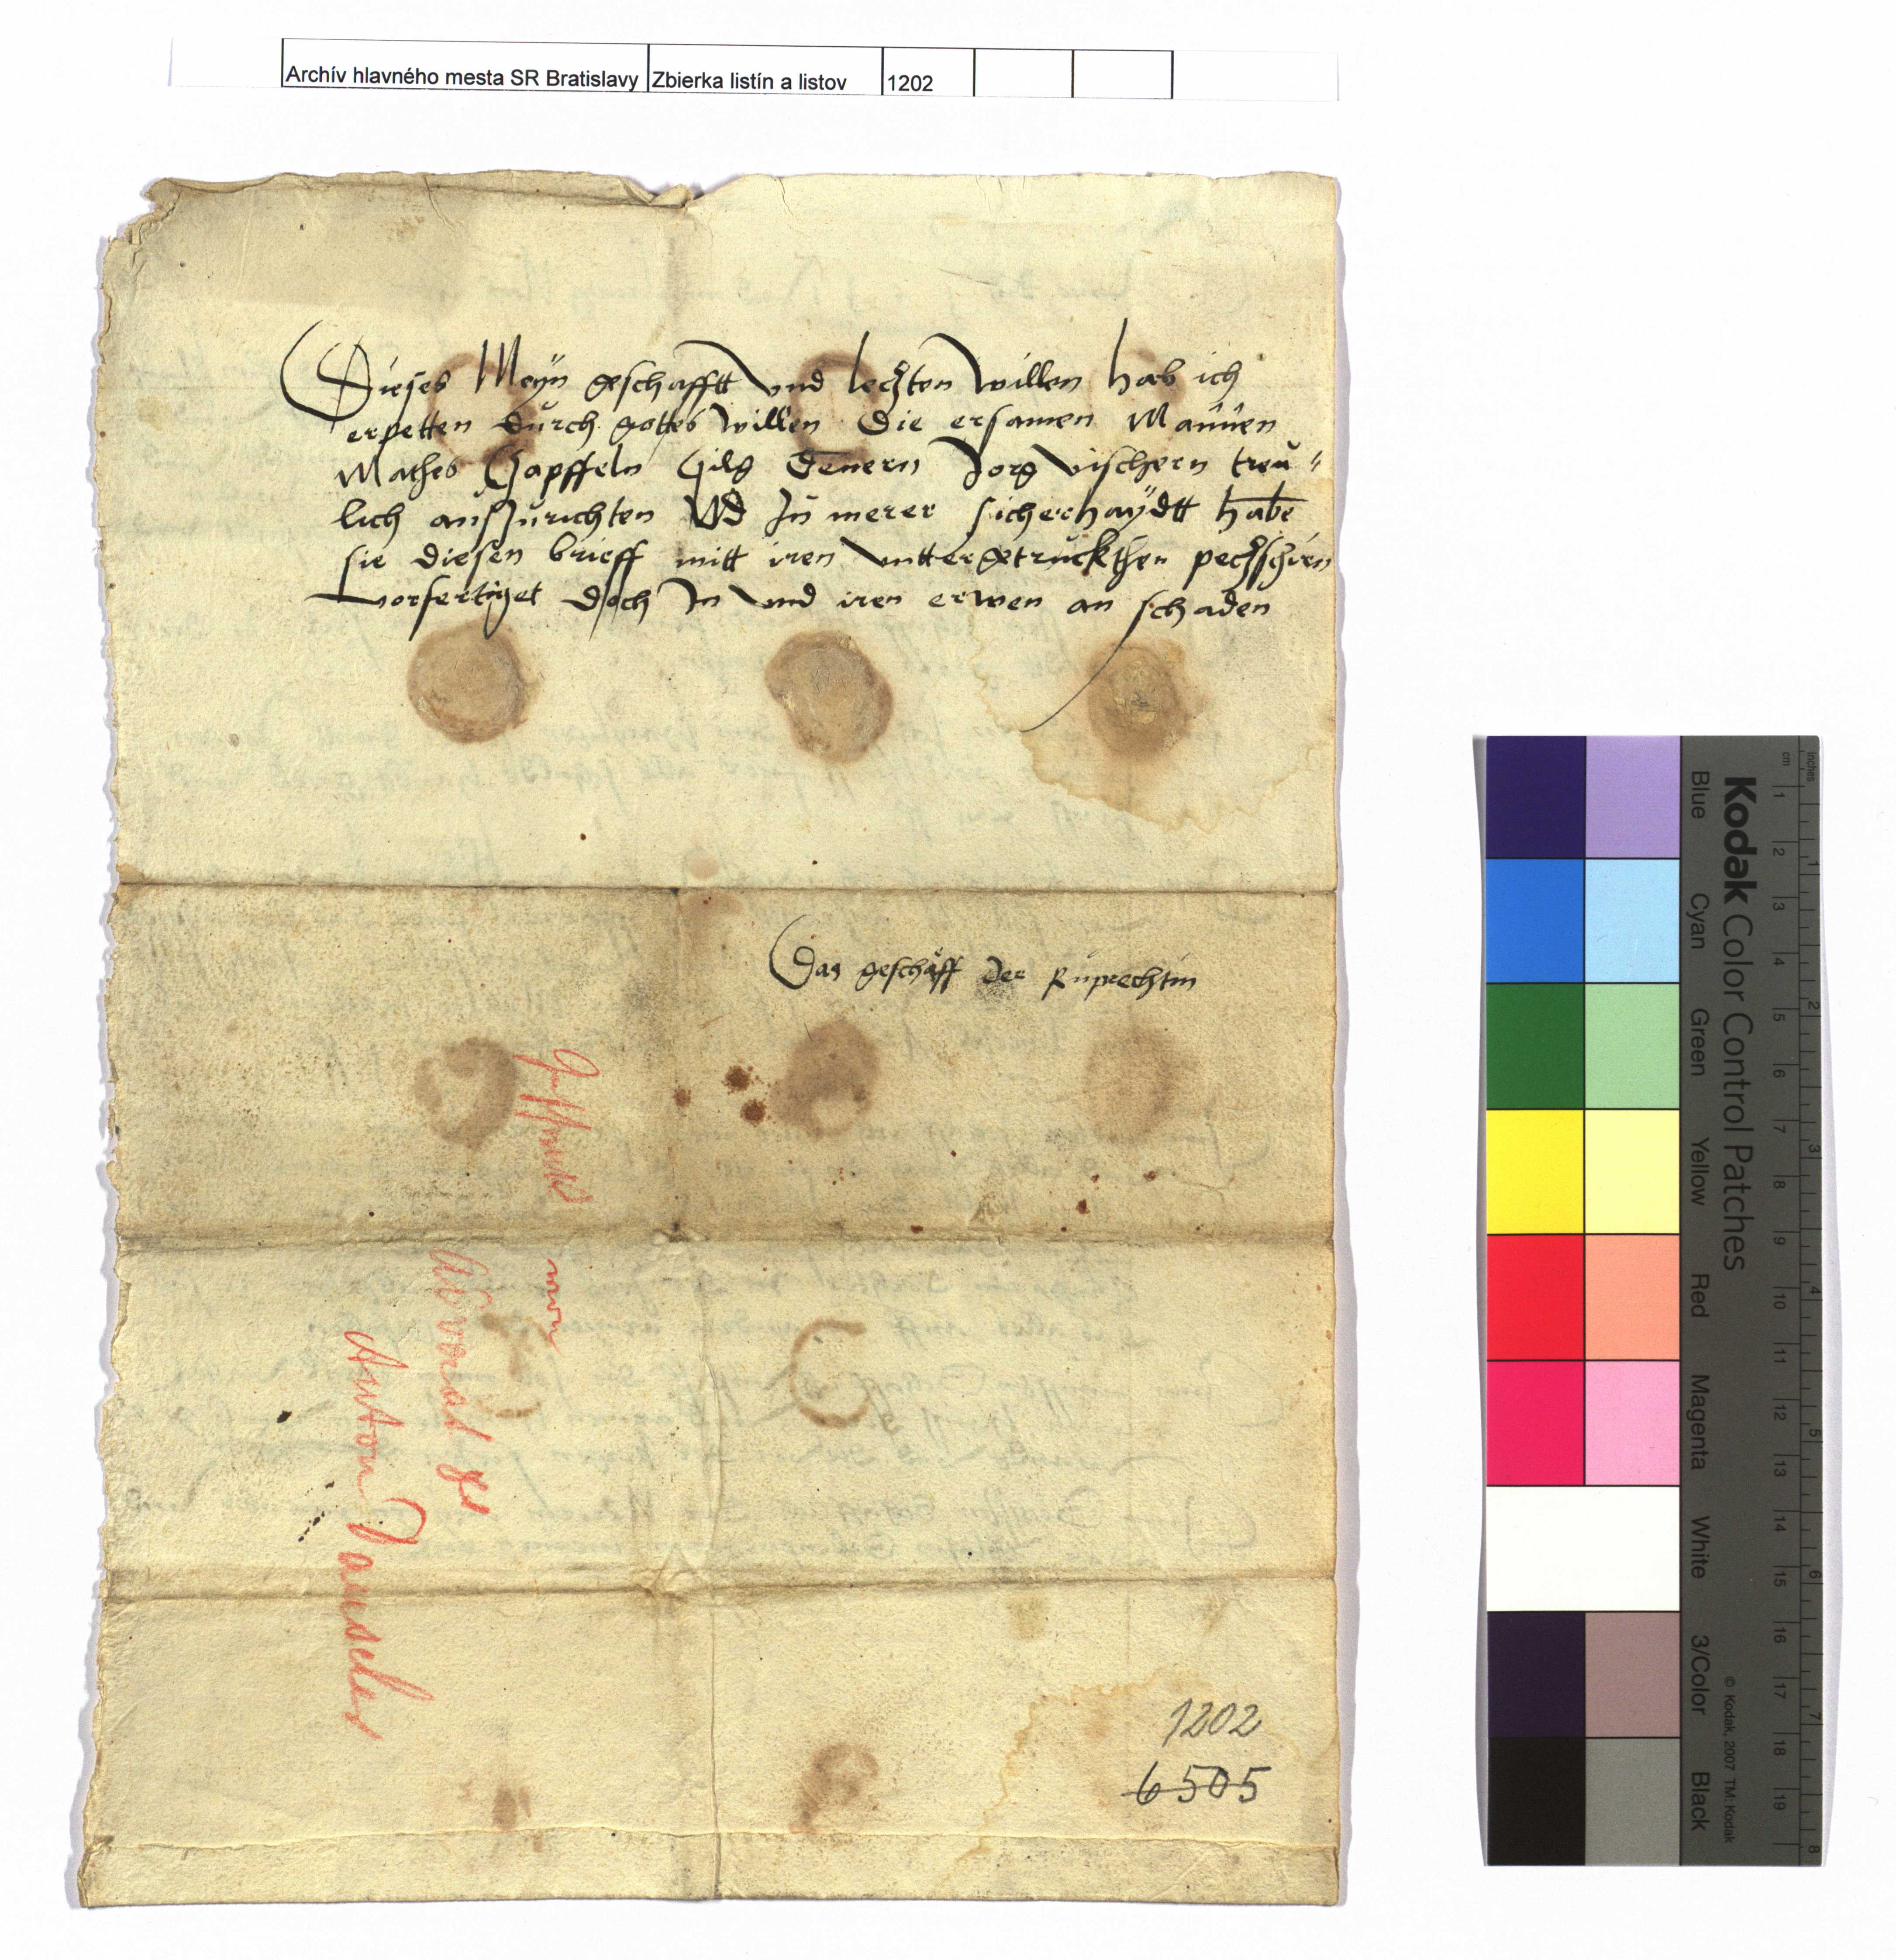 Archív hlavného mesta SR Bratislavy Zbierka listín a listov 1202
Dieses Meÿn geschafftt vnd leczten willen hab ich
erpetten durch gottes willen Die ersamen Mannen
Mathes Gilg Jorg vischern treu"
lich auszurichten Vd zu merer sicherhaÿdtt habe
sie diesen brieff mitt iren vnttergetruckthen
vorfertiget doch In vnd iren erwen an schaden
Das geschäff der Ruprechtin
von
Anton Janseler
1202
6505
Kodak Color Control Patches
Blue Cyan Green Yellow Red Magenta White 3/Color Black
© Kodak, 2007 TM: Kodak
cm 1 2 3 4 5 6 7 8 9 10 11 12 13 14 15 16 17 18 19
inches 1 2 3 4 5 6 7 8